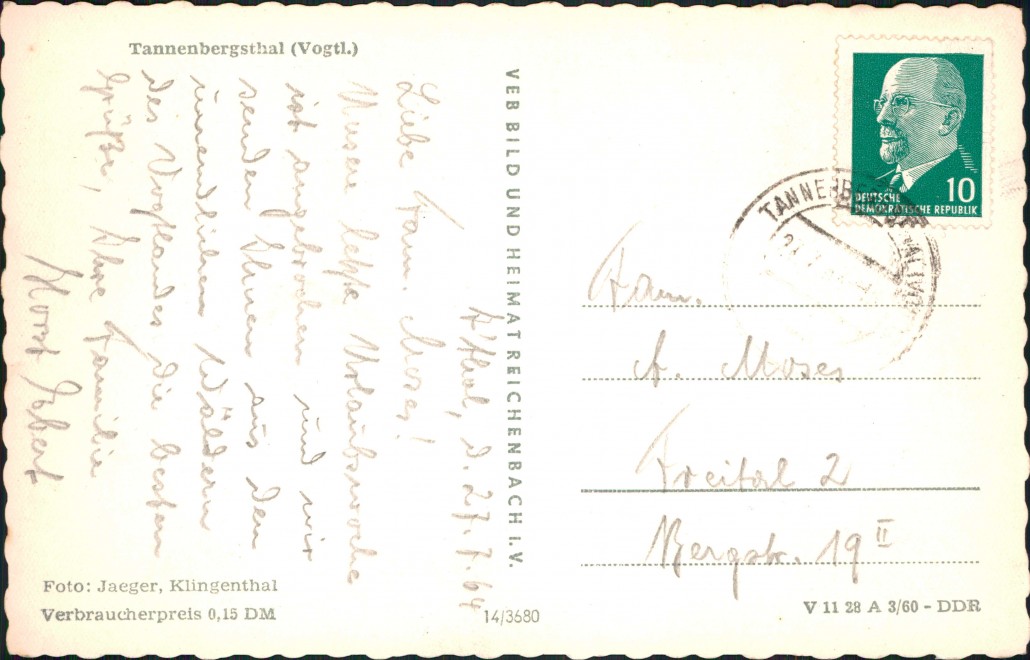 Tannenbergsthal (Vogtl.)
T'thal, d. 27.7.64
Liebe Fam. Moses!
Unsere letzte Urlaubswoche
ist angebrochen und wir
senden Ihnen aus den
unendlichen Wäldern
des Vogtlandes die besten
Grüße, Ihre Familie
Horst
Foto: Jaeger, Klingenthal
Verbraucherpreis 0,15 DM
VEB BILD UND HEIMAT REICHENBACH I. V.
14/3680
10
DEUTSCHE
DEMOKRATISCHE REPUBLIK
Fam.
A. Moses
Freital 2
Bergstr. 19 II
V 11 28 A 3/60 - DDR